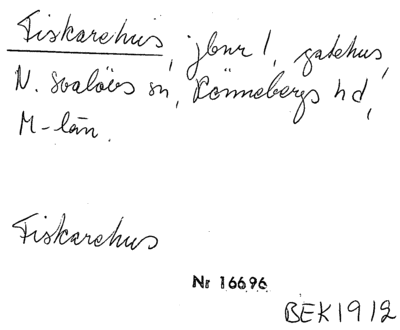 Fiskarehus, jbnr 1, gatehus,
N. Svalövs sn, Rönnebergs hd,
M-län.
Fiskarehus
Nr 16696
BEK1912